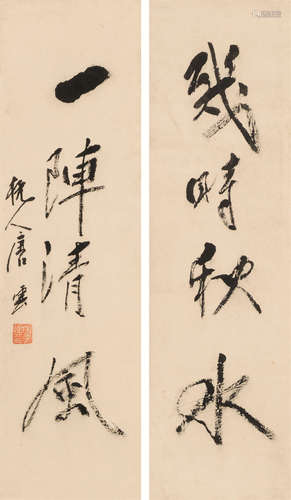 幾時秋水
一陣清風
杭人唐雲